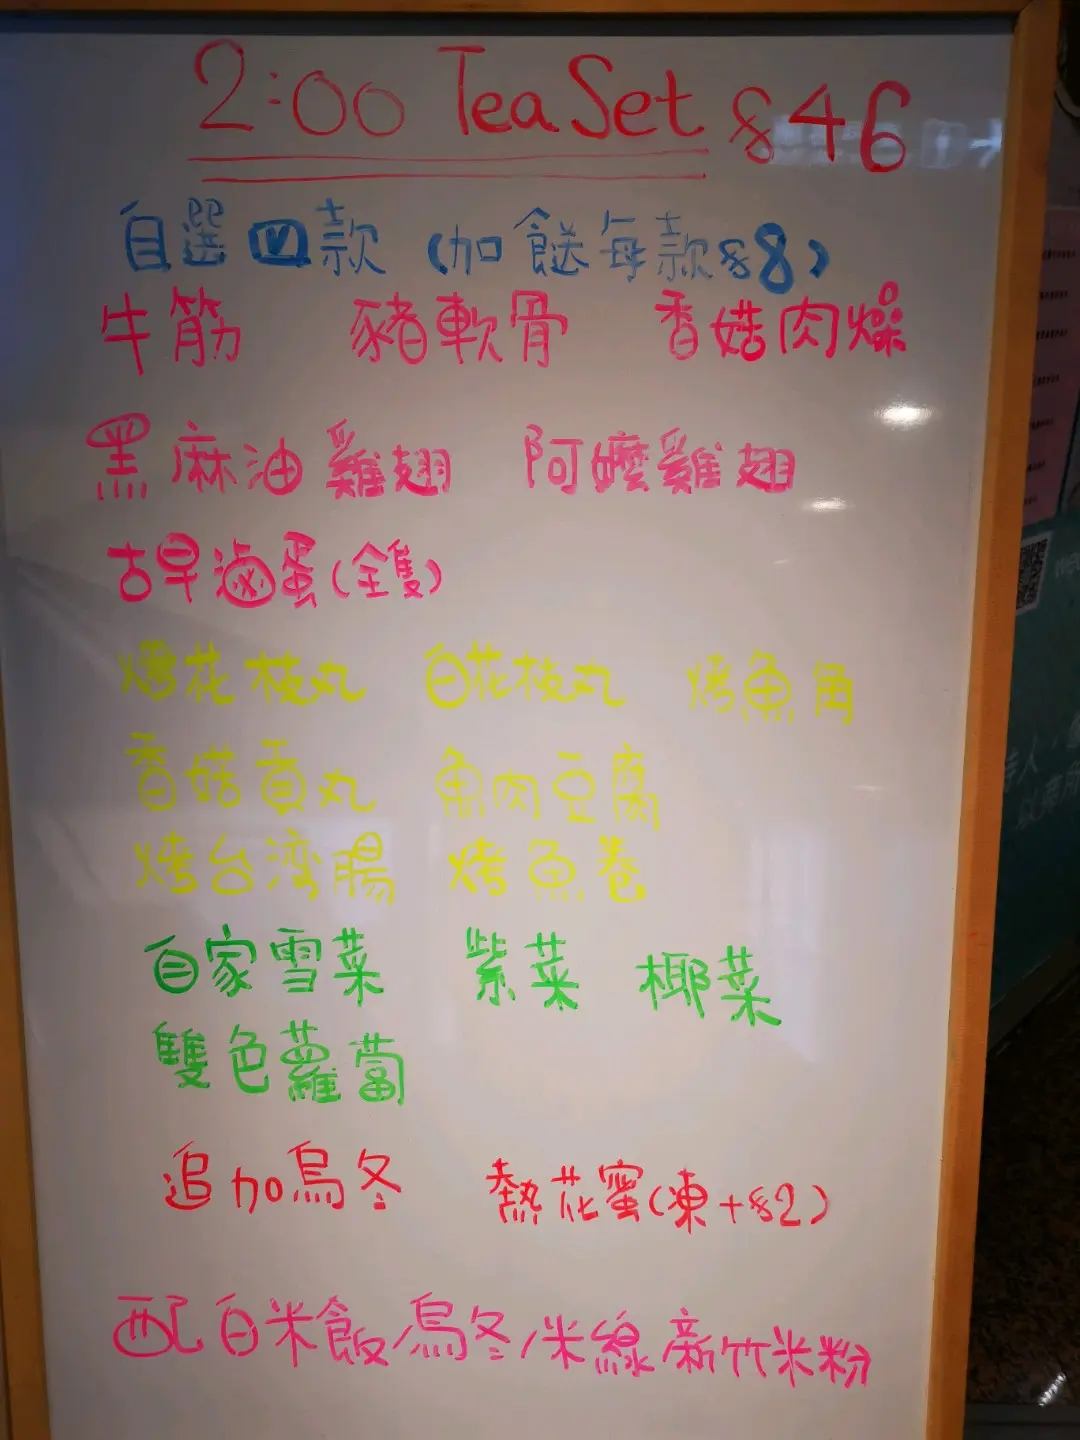 2:00 Tea Set $46
自選四款 (加餸每款$8)
牛筋 豬軟骨 香菇肉燥
黑麻油雞翅 阿嬤雞翅
古早滷蛋(全隻)
烤花枝丸 白花枝丸 烤魚角
香菇貢丸 魚肉豆腐
烤台湾腸 烤魚卷
自家雪菜 紫菜 椰菜
雙色蘿蔔
追加烏冬 熱花蜜(凍+$2)
配白米飯/烏冬/米線/新竹米粉